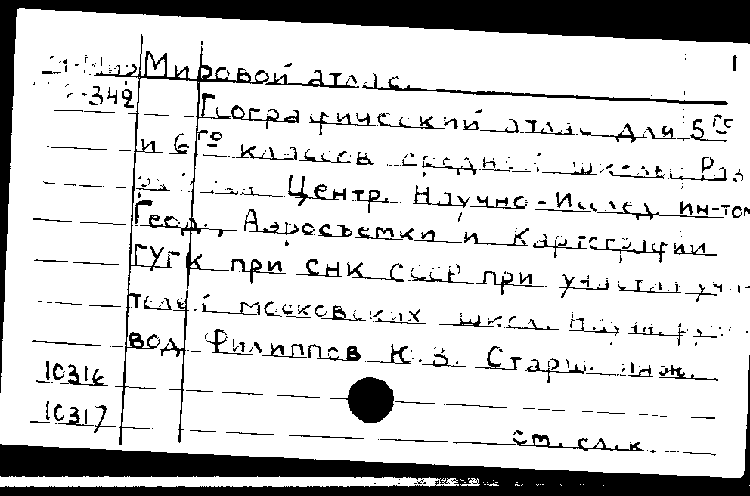 1
Мировой атлас.
-342
Географический атлас для 5го
и 6го классов средней школы. Раз
Центр. Научно-Исслед. ин-том
Геод., Аэросъемки и Картографии
ГУГК при СНК СССР при участии учи-
телей московских школ. Научн. рук
вод. Филиппов Ю.В. Старш. инж.
10316
10317
см. сл. к.